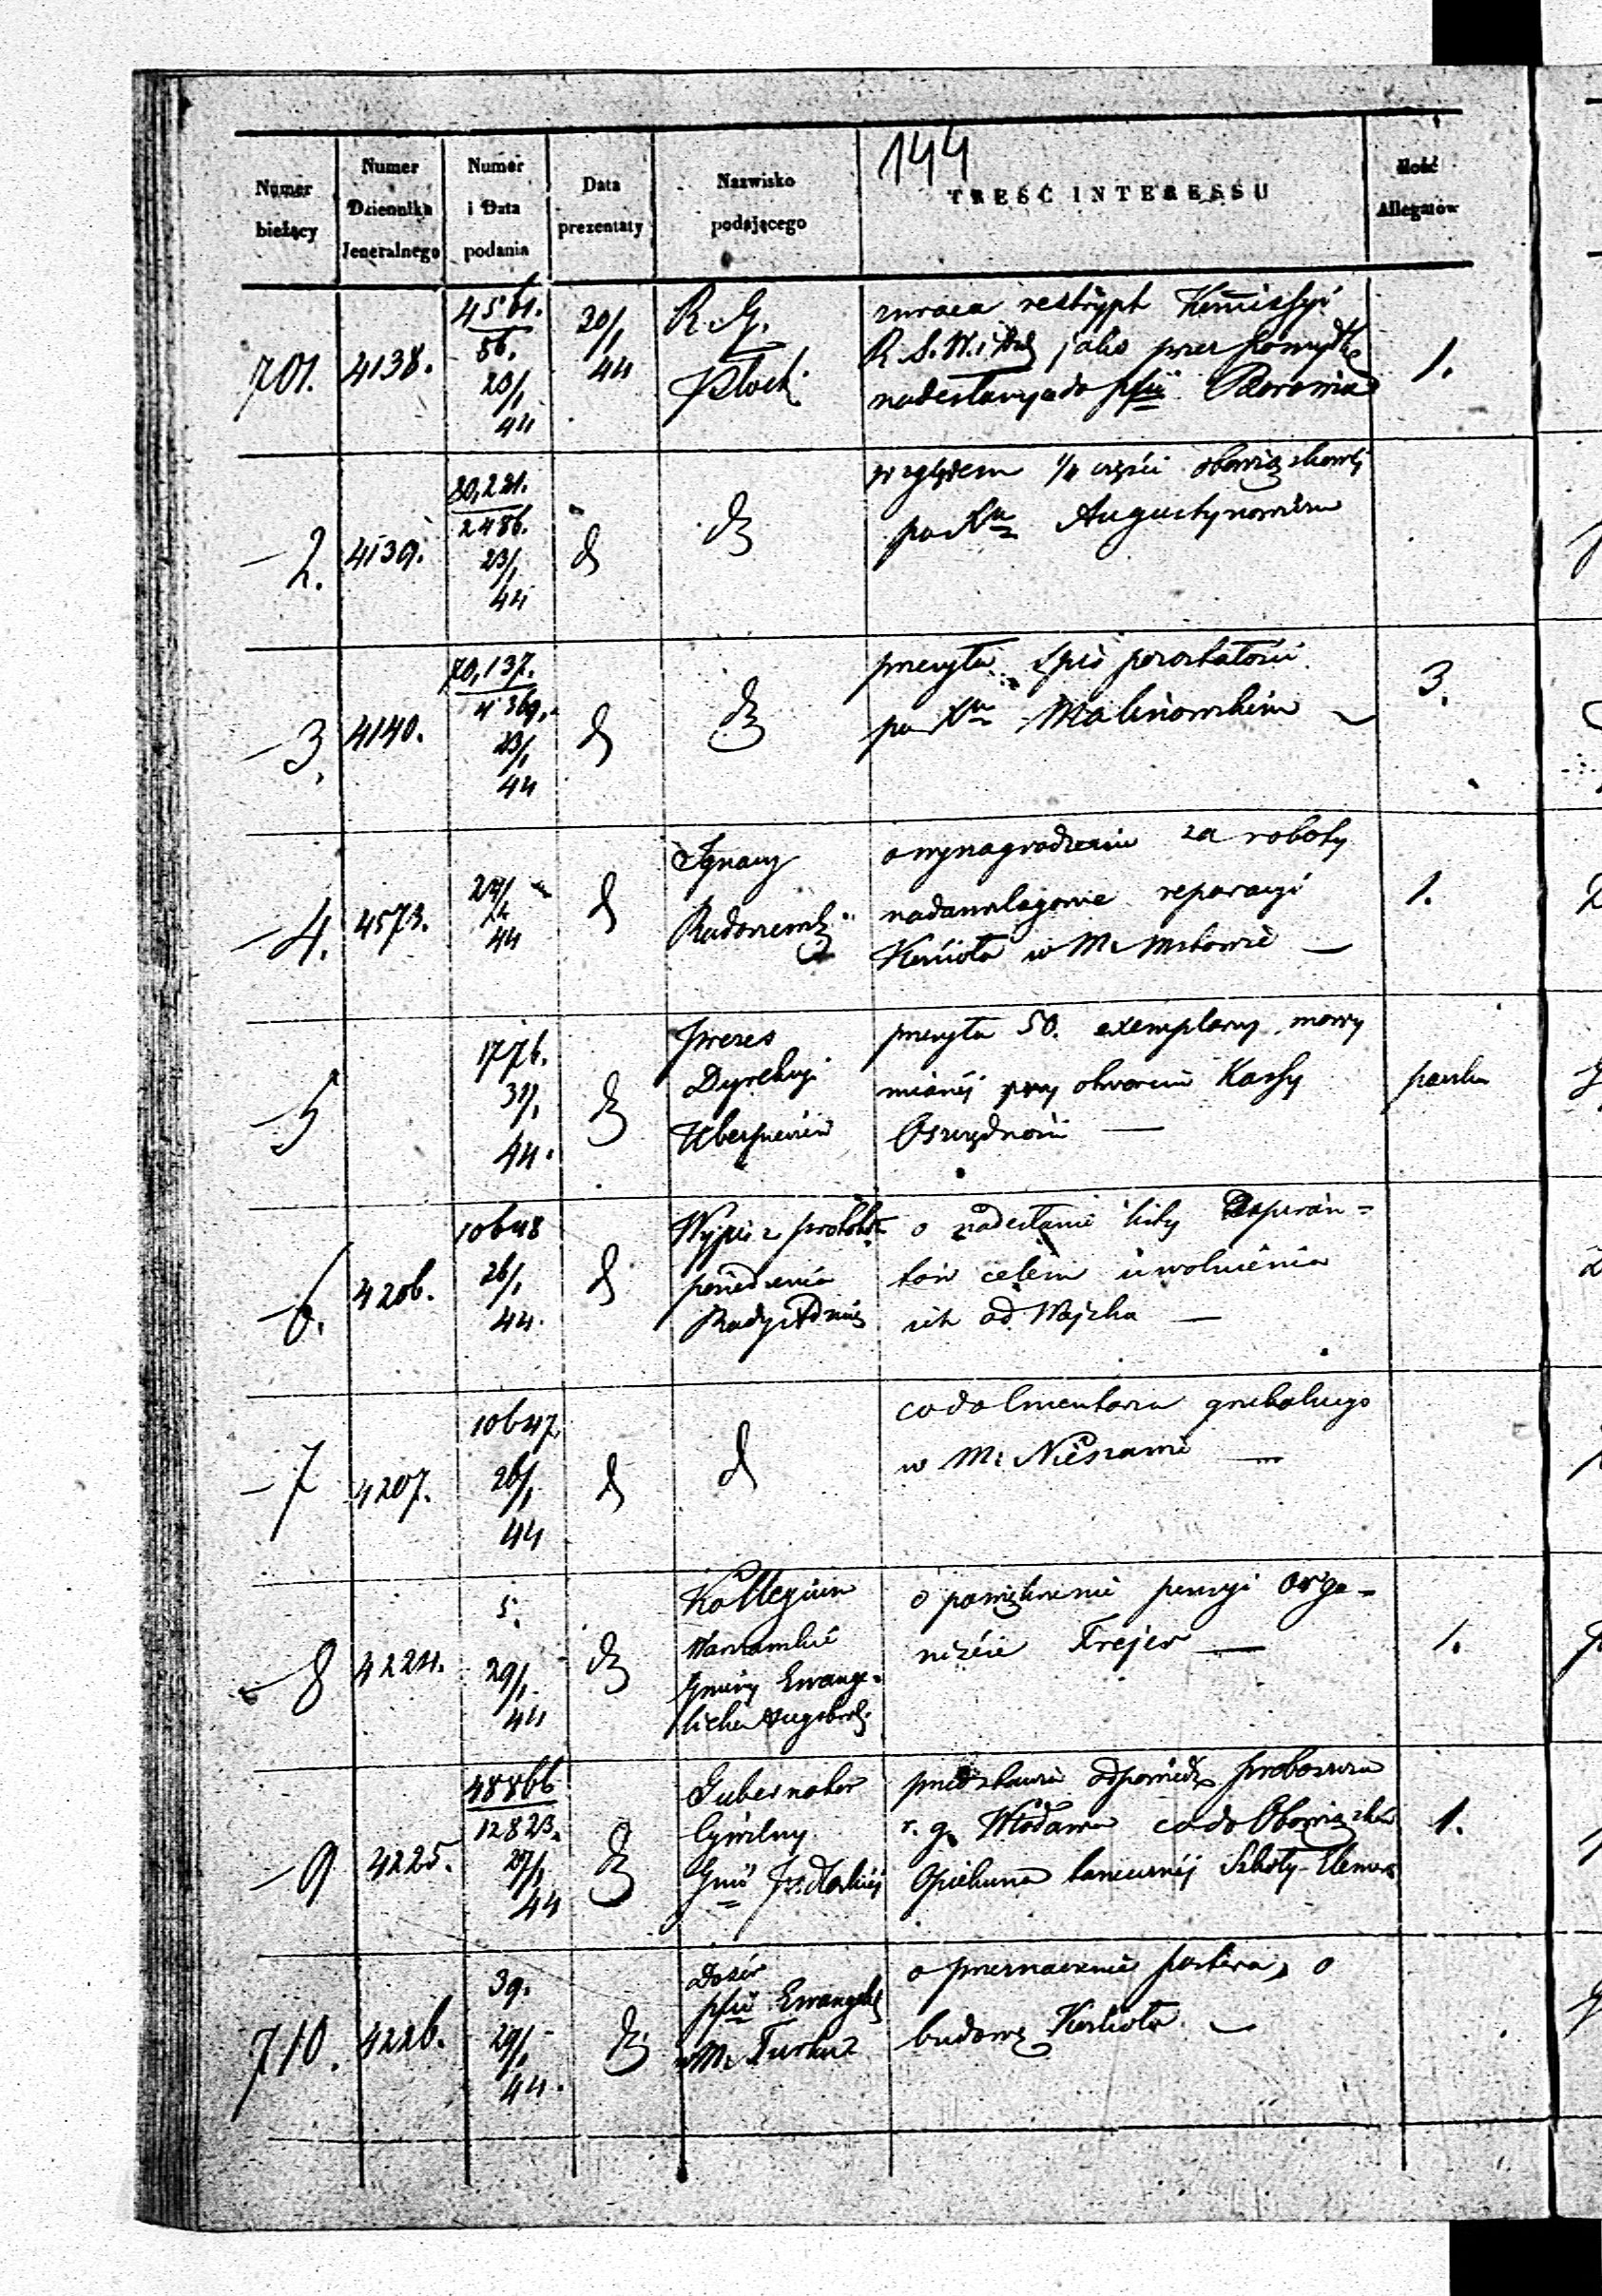 144
Numer bieżący
Numer Dziennika Jeneralnego
Numer i Data podania
Data prezentaty
Nazwisko podającego
TREŚĆ INTERESSU
Ilość Allegatów
701.
4138.
4561.
56.
20/1
44
20/1
44
R. G.
Płock.
zwraca reskrypt Kommissyi
R. S. W. i jako przez pomyłkę
nadesłany do
1.
2.
4139.
2486.
23/1
44
względem 1/4 części obowiązkowej
po Xu Augustynowiczu
3.
4140.
70,137.
4369.
23/1
44
przesyła spis pozostałości
po Xu Malinowskim
3.
4.
4573.
44
Ignacy
o wynagrodzenie za roboty
reparacyi
Kościoła w M.
1.
5
1776.
31/1
44.
Prezes
Dyrekcyi
Ubezpieczeń
przesyła 50. exemplarzy mowy
mianéj przy otwarciu Kassy
Oszczędności
paczka
6.
4206.
10648
26/1
44.
Wypis z protokółu
posiedzenia
Rady
o nadesłanie listy Aspiran=
tów celem uwolnienia
ich od Wojska
7
4207.
10647
26/1
44
co do Cmentarza grzebalnego
w M. Nieszawie
8
4224.
5.
29/1
44
Kollegium
Warszawskie
Gminy Ewange=
licko Augsbursk.
o powiększenie pensyi Orga=
niście Frejer
1.
9
4225.
48866
12823.
27/1
44
Gubernator
Cywilny
Gnii Podlaskiéj
przedstawia odpowiedź proboszcza
r. g. Włodawa co do Obowiązków
Opiekuna tamecznéj Szkoły Elemen
1.
710.
4226.
39.
29/1
44.
Dozór
pfii Ewangel
w M. Turku
o przeznaczenie pastora, o
budowę Kościoła.